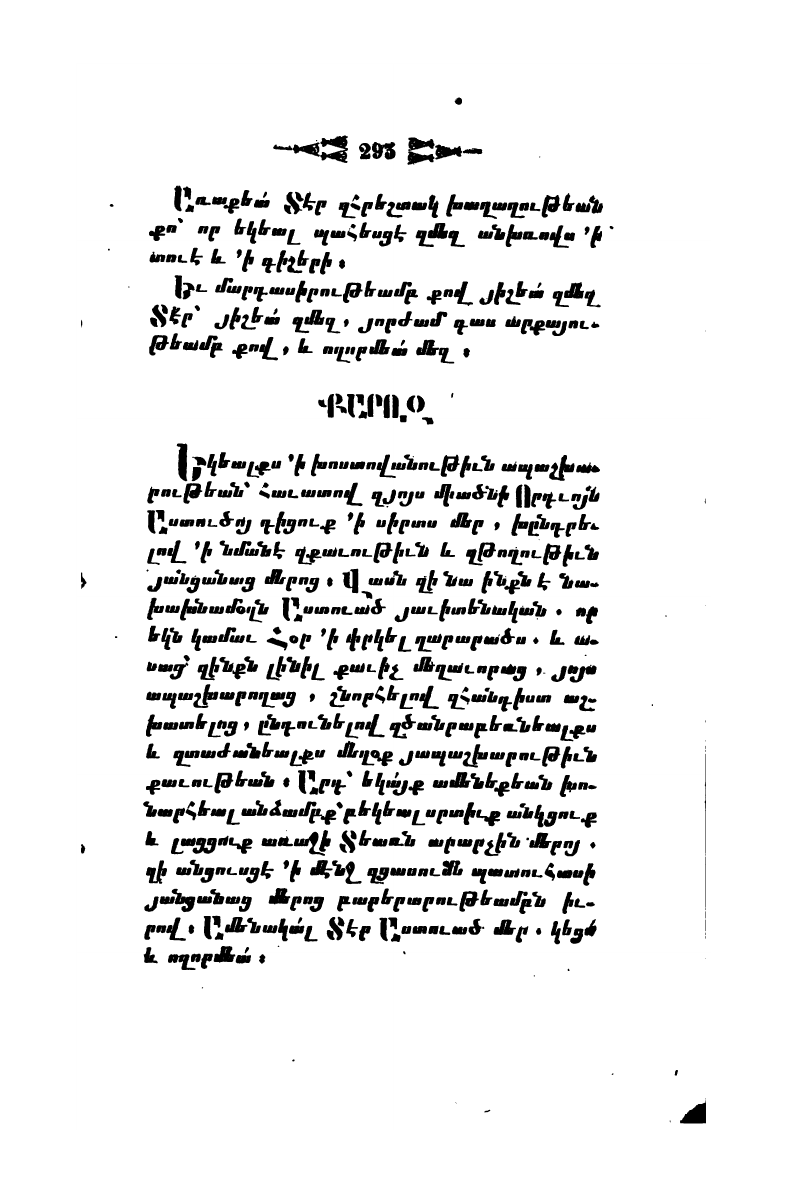 293
Առաքեա՛ Տէր զհրեշտակ խաղաղութեան
քո՝ որ եկեալ պահեսցէ զմեզ անխռովս ՚ի
տուէ և ՚ի գիշերի ։
Եւ մարդասիրութեամբ քով յիշեա՛ զմեզ
Տէր՝ յիշեա՛ զմեզ, յորժամ գաս արքայու-
թեամբ քով, և ողորմեա՛ մեզ ։
ՔԱՐՈԶ
Եկեալքս ՚ի խոստովանութիւն ապաշխա-
րութեան՝ հաւատով զյոյս միածնի Որդւոյն
Աստուծոյ դիցուք ՚ի սիրտս մեր, խընդրե-
լով ՚ի նմանէ զքաւութիւն և զթողութիւն
յանցանաց մերոց ։ Վասն զի նա ինքն է նա-
խախնամօղն Աստուած յաւիտենական . որ
եկն կամաւ Հօր ՚ի փրկել զարարածս . և ա-
սաց՝ զինքն լինիլ քաւիչ մեղաւորաց, յոյս
ապաշխարողաց, շնորհելով զհանգիստ աշ-
խատելոց, ընդունելով զծանրաբեռնեալքս
և զտաժանեալքս մեղօք յապաշխարութիւն
քաւութեան ։ Արդ՝ եկա՛յք ամենեքեան խո-
նարհեալ անձամբք՝ բեկեալ սրտիւք անկցուք
և լացցուք առաջի Տեառն արարչին մերոյ .
զի անցուսցէ ՚ի մէնջ զցասումն պատուհասի
յանցանաց մերոց բարերարութեամբն իւ-
րով ։ Ամենակա՛լ Տէր Աստուած մեր . կեցո՛
և ողորմեա՛ ։